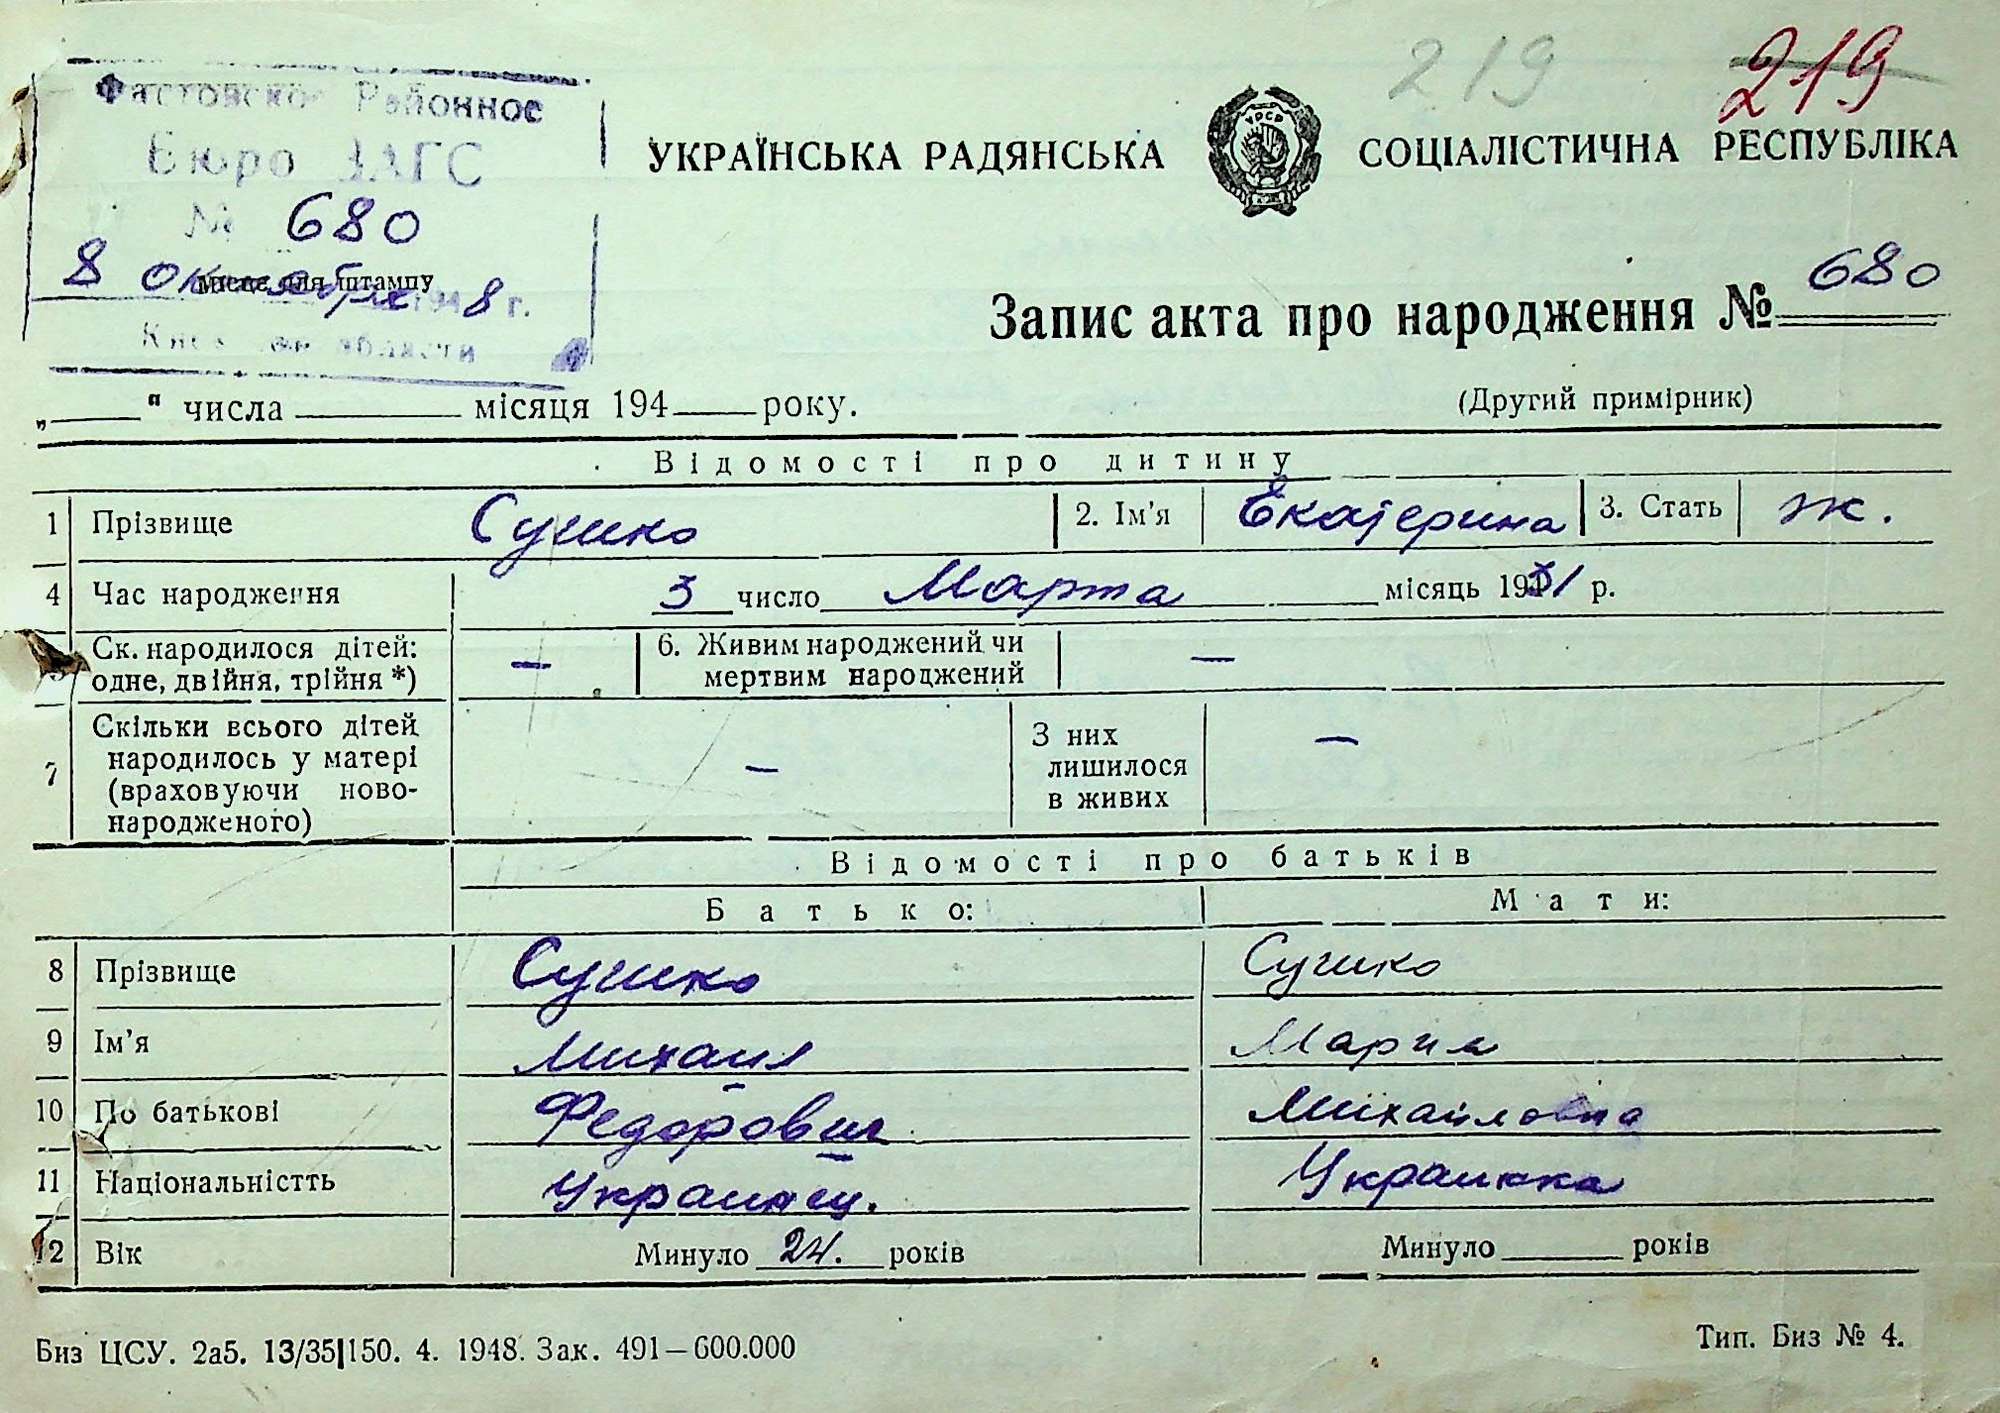 219 219
Фастовское Районное
Бюро ЗАГС
№ 680
місце для штампу
8 октября 1948 г.
Киевской области
УКРАЇНСЬКА РАДЯНСЬКА СОЦІАЛІСТИЧНА РЕСПУБЛІКА
УРСР
Запис акта про народження № 680
„ “ числа місяця 194 року.
(Другий примірник)
Відомості про дитину
1 Прізвище Сушко 2. Ім'я Екатерина 3. Стать ж.
4 Час народження 3 число Марта місяць 1931 р.
5 Ск. народилося дітей: одне, двійня, трійня *) — 6. Живим народжений чи мертвим народжений —
7 Скільки всього дітей народилось у матері (враховуючи ново-народженого) — З них лишилося в живих —
Відомості про батьків
Батько: Мати:
8 Прізвище Сушко Сушко
9 Ім'я Михаил Мария
10 По батькові Федорович Михайловна
11 Національністть Украинец. Украинка
12 Вік Минуло 24. років Минуло років
Биз ЦСУ. 2а5. 13/35|150. 4. 1948. Зак. 491—600.000
Тип. Биз № 4.